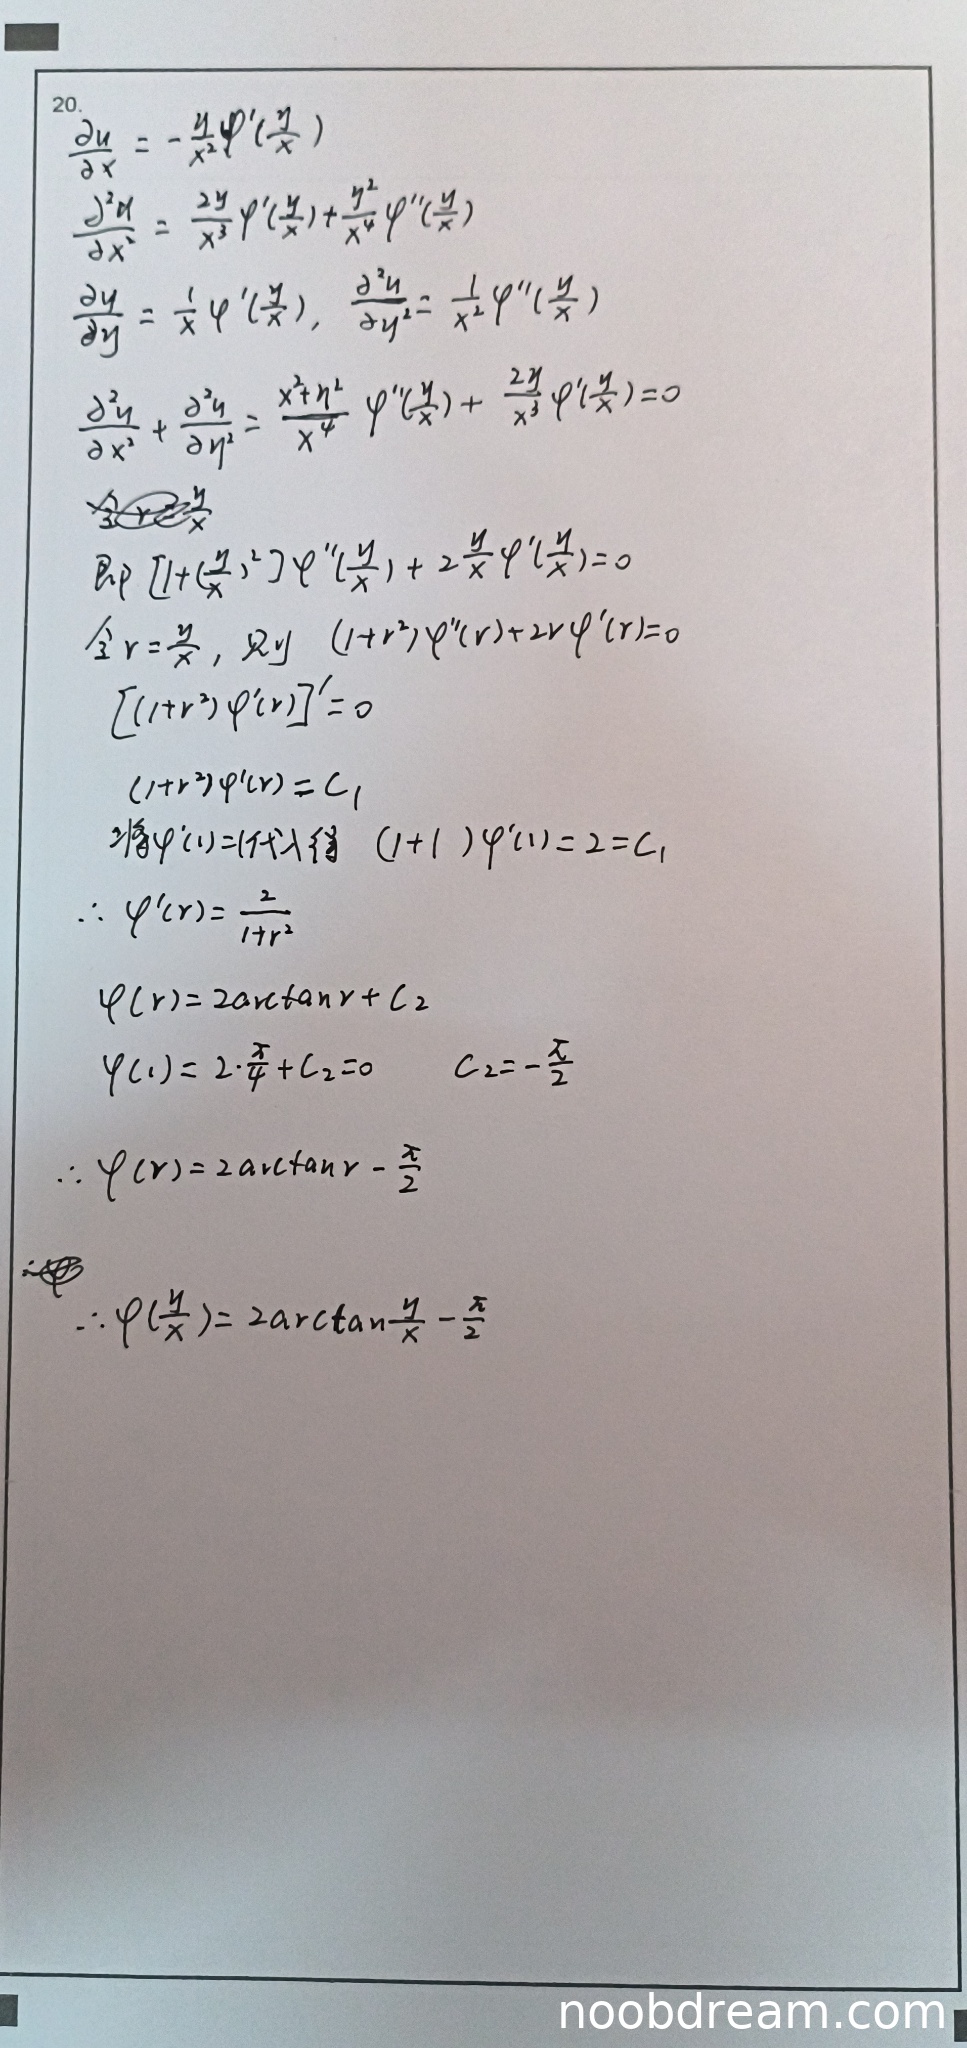 20.
∂u/∂x = -y/x² φ'(y/x)
∂²u/∂x² = 2y/x³ φ'(y/x) + y²/x⁴ φ''(y/x)
∂u/∂y = 1/x φ'(y/x), ∂²u/∂y² = 1/x² φ''(y/x)
∂²u/∂x² + ∂²u/∂y² = (x²+y²)/x⁴ φ''(y/x) + 2y/x³ φ'(y/x) = 0
即 [1+(y/x)²] φ''(y/x) + 2 y/x φ'(y/x) = 0
令 r = y/x, 则 (1+r²) φ''(r) + 2r φ'(r) = 0
[(1+r²) φ'(r)]' = 0
(1+r²) φ'(r) = C₁
将 φ'(1) = 1 代入得 (1+1) φ'(1) = 2 = C₁
∴ φ'(r) = 2/(1+r²)
φ(r) = 2arctan r + C₂
φ(1) = 2·π/4 + C₂ = 0 C₂ = -π/2
∴ φ(r) = 2arctan r - π/2
∴ φ(y/x) = 2arctan y/x - π/2
noobdream.com